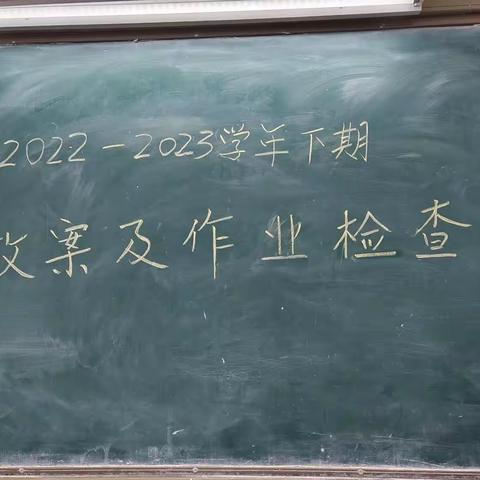 2022-2023学年下期
教案及作业检查